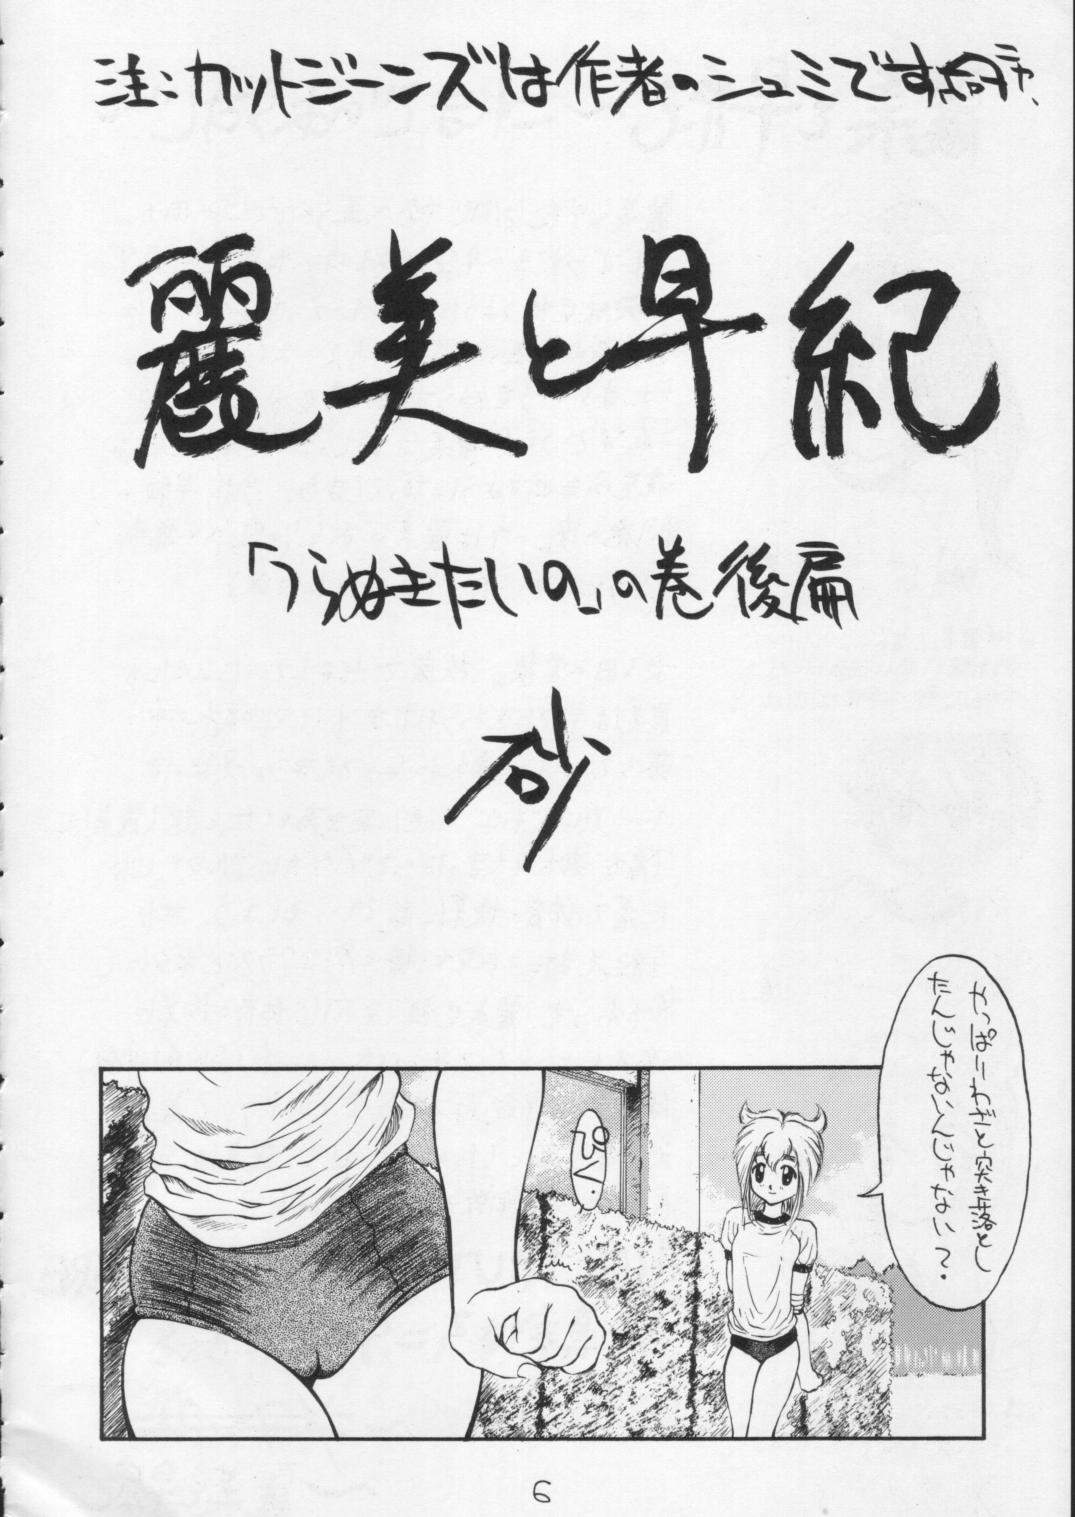 注:カットジーンズは作者のシュミです
麗美と早紀
「つらぬきたいの」の巻後扁
砂
やっぱりわざと突き落とし
たんじゃないんじゃない?
6